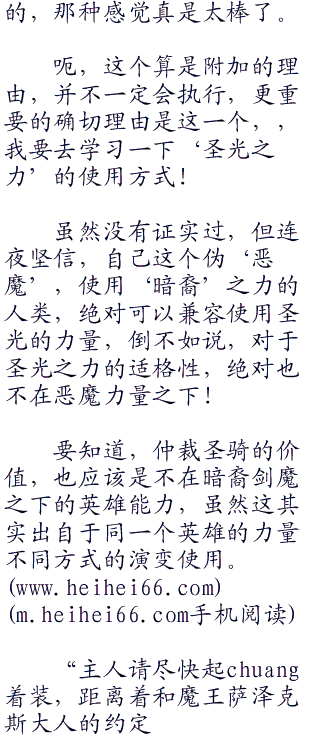 的，那种感觉真是太棒了。
呃，这个算是附加的理
由，并不一定会执行，更重
要的确切理由是这一个，，
我要去学习一下‘圣光之
力’的使用方式！
虽然没有证实过，但连
夜坚信，自己这个伪‘恶
魔’，使用‘暗裔’之力的
人类，绝对可以兼容使用圣
光的力量，倒不如说，对于
圣光之力的适格性，绝对也
不在恶魔力量之下！
要知道，仲裁圣骑的价
值，也应该是不在暗裔剑魔
之下的英雄能力，虽然这其
实出自于同一个英雄的力量
不同方式的演变使用。
(www.heihei66.com)
(m.heihei66.com手机阅读)
“主人请尽快起chuang
着装，距离着和魔王萨泽克
斯大人的约定